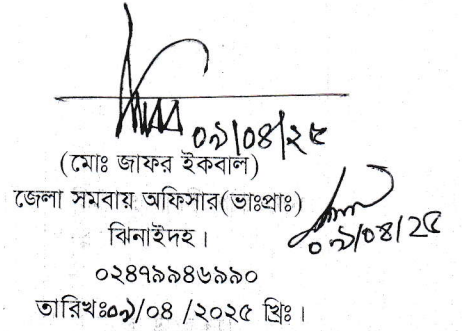 ০৯/০৪/২৫
(মোঃ জাফর ইকবাল)
জেলা সমবায় অফিসার(ভাঃপ্রাঃ)
ঝিনাইদহ।
০৯/০৪/২৫
০২৪৭৯৯৪৬৯৯০
তারিখঃ০৯/০৪ /২০২৫ খ্রিঃ।